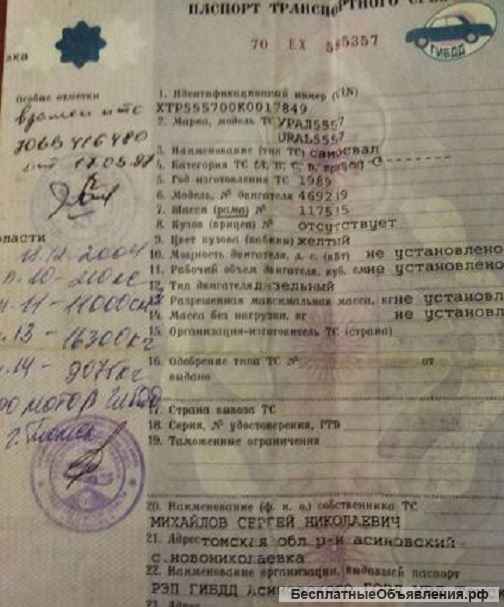 ПАСПОРТ ТРАНСПОРТНОГО
70 ЕХ 585357
ГИБДД
Особые отметки
взамен птс
от 17.03.97
1. Идентификационный номер (VIN)
XTP555700K0017849
2. Марка, модель ТС УРАЛ5557
URAL5557
3. Наименование (тип ТС) самосвал
4. Категория ТС (А, В, С, D, прицеп) С
5. Год изготовления ТС 1989
6. Модель, № двигателя 469219
7. Шасси (рама) № 117515
8. Кузов (прицеп) № отсутствует
9. Цвет кузова (кабины) желтый
10. Мощность двигателя, л. с. (кВт) не установлено
11. Рабочий объем двигателя, куб. см не установлено
12. Тип двигателя дизельный
13. Разрешенная максимальная масса, кг не установл
14. Масса без нагрузки, кг не установл
15. Организация-изготовитель ТС (страна)
16. Одобрение типа ТС № от
выдано
17. Страна вывоза ТС
18. Серия, № удостоверения, ГТД
19. Таможенные ограничения
области
п.10-210лс
п.11-11000см³
п.13-16300кг
п.14-9075кг
г. Томск
20. Наименование (ф. и. о.) собственника ТС
МИХАЙЛОВ СЕРГЕЙ НИКОЛАЕВИЧ
21. Адрес томская обл р-н асиновский
с.новониколаевка
22. Наименование организации, выдавшей паспорт
РЭП ГИБДД
23. Адрес
БесплатныеОбъявления.рф